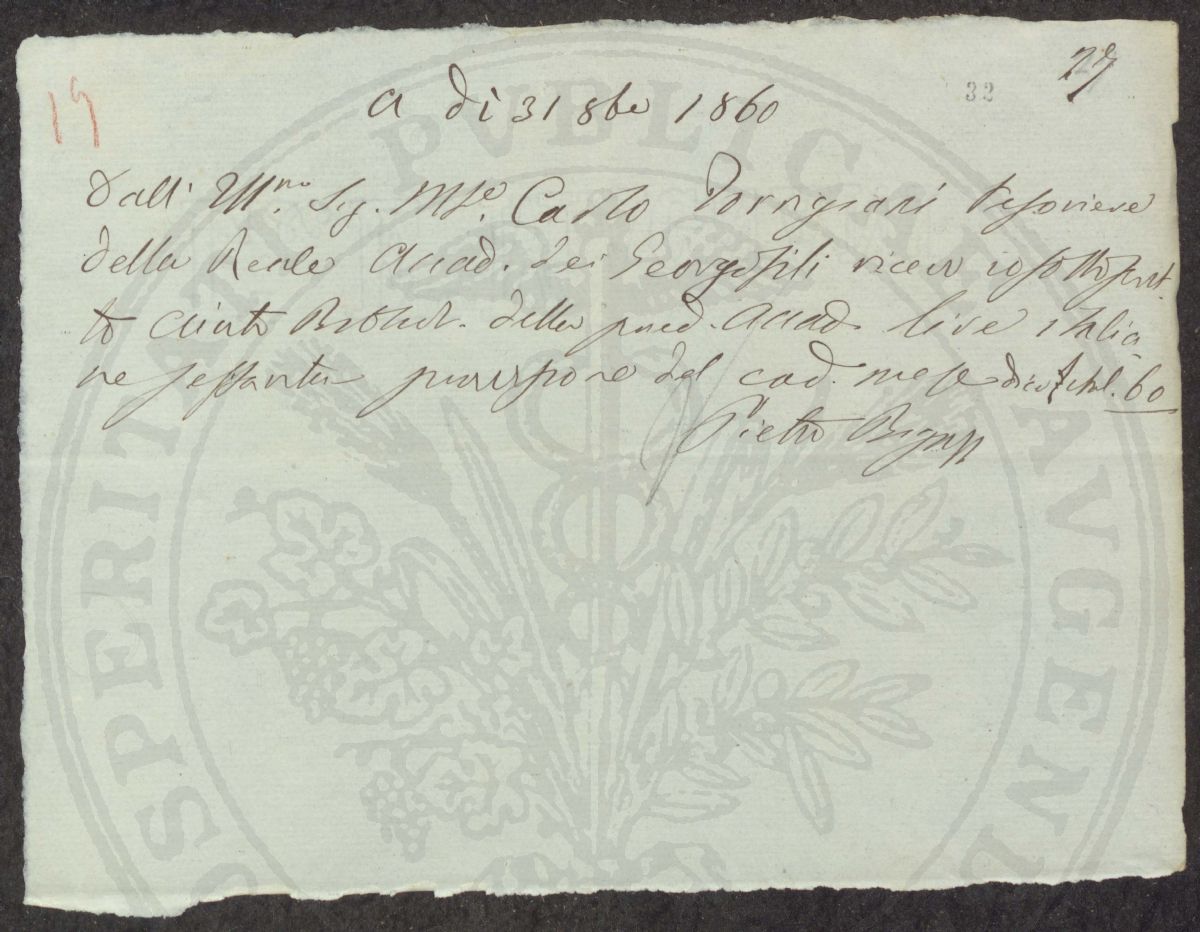 19
32
27
A dì 31 8bre 1860
Dall' Ill.mo Sig. M.se Carlo Torrigiani Tesoriere
della Reale Accad. dei Georgofili ricevo io sottoscrit
to aiuto Bibliot. della pred. Accad. lire italia
ne sessanta provvisione del cad. mese dico £ ital. 60
Pietro
PROSPERITATI PUBLICAE AVGENDAE